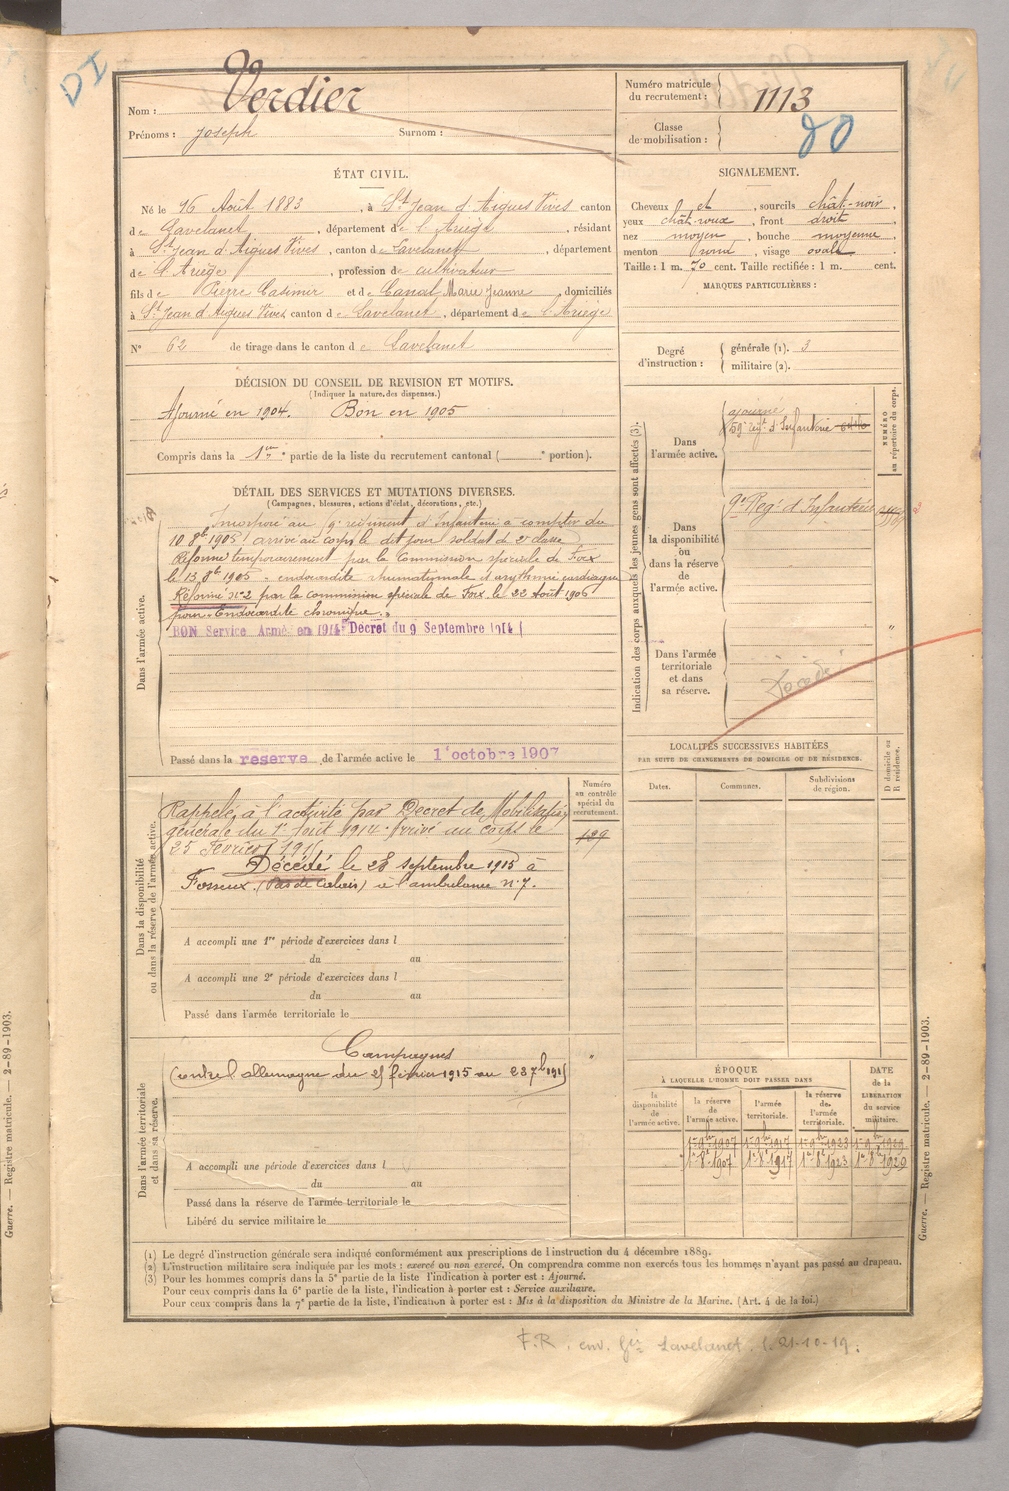 DI
Nom : Verdier
Prénoms : Joseph Surnom :
Numéro matricule du recrutement : 1113
Classe de mobilisation :
ÉTAT CIVIL.
Né le 16 Août 1883, à St Jean d'Aigues Vives canton
de Lavelanet, département de l'Ariège, résidant
à St Jean d'Aigues Vives, canton de Lavelanet, département
de l'Ariège, profession de cultivateur
fils de Pierre Casimir et de Canal Marie Jeanne, domiciliés
à St Jean d'Aigues Vives canton de Lavelanet, département de l'Ariège
N° 62 de tirage dans le canton de Lavelanet
SIGNALEMENT.
Cheveux et, sourcils chât-noir,
yeux chât-roux, front droit,
nez moyen, bouche moyenne,
menton rond, visage ovale
Taille : 1 m. 70 cent. Taille rectifiée : 1 m. cent.
MARQUES PARTICULIÈRES :
Degré d'instruction : générale (1). 3
militaire (2).
DÉCISION DU CONSEIL DE REVISION ET MOTIFS.
(Indiquer la nature des dispenses.)
Ajourné en 1904. Bon en 1905
Compris dans la 1re partie de la liste du recrutement cantonal ( portion).
DÉTAIL DES SERVICES ET MUTATIONS DIVERSES.
(Campagnes, blessures, actions d'éclat, décorations, etc.)
Dans l'armée active.
Incorporé au 9e régiment d'Infanterie à compter du
10 8bre 1905 arrivé au corps le dit jour soldat de 2e classe
Réformé temporairement par la Commission spéciale de Foix
le 13 8bre 1905 - endocardite rhumatismale et arythmie cardiaque
Réformé n°2 par la commission spéciale de Foix le 22 Août 1906
pour "Endocardite chronique".
BON Service Armé en 1914 Décret du 9 Septembre 1914
Passé dans la reserve de l'armée active le 1er octobre 1907
Indication des corps auxquels les jeunes gens sont affectés (3).
NUMÉRO au répertoire du corps.
Dans l'armée active.
ajourné
59e régt d'Infanterie
Dans la disponibilité ou dans la réserve de l'armée active.
9e Reg. d'Infanterie
Dans l'armée territoriale et dans sa réserve.
Décédé
Dans la disponibilité ou dans la réserve de l'armée active.
Numéro au contrôle spécial du recrutement.
129
Rappelé à l'activité par Décret de Mobilisation
générale du 1er Août 1914. Arrivé au corps le
25 Février 1915
Décédé le 28 septembre 1915 à
Fosseux (Pas de Calais) à l'ambulance n° 7.
A accompli une 1re période d'exercices dans l
du au
A accompli une 2e période d'exercices dans l
du au
Passé dans l'armée territoriale le
LOCALITÉS SUCCESSIVES HABITÉES
PAR SUITE DE CHANGEMENTS DE DOMICILE OU DE RÉSIDENCE.
Dates. Communes. Subdivisions de région. D domicile ou R résidence.
Dans l'armée territoriale et dans sa réserve.
Campagnes
Contre l'allemagne du 25 février 1915 au
A accompli une période d'exercices dans l
du au
Passé dans la réserve de l'armée territoriale le
Libéré du service militaire le
ÉPOQUE
À LAQUELLE L'HOMME DOIT PASSER DANS
la disponibilité de l'armée active. la réserve de l'armée active. l'armée territoriale. la réserve de l'armée territoriale. DATE de la LIBÉRATION du service militaire.
1er 9bre 1907 1er 9bre 1917 1er 9bre 1923 1er 9bre 1929
1er 8bre 1907 1er 8bre 1917 1er 8bre 1923 1er 8bre 1929
(1) Le degré d'instruction générale sera indiqué conformément aux prescriptions de l'instruction du 4 décembre 1889.
(2) L'instruction militaire sera indiquée par les mots : exercé ou non exercé. On comprendra comme non exercés tous les hommes n'ayant pas passé au drapeau.
(3) Pour les hommes compris dans la 5e partie de la liste l'indication à porter est : Ajourné.
Pour ceux compris dans la 6e partie de la liste, l'indication à porter est : Service auxiliaire.
Pour ceux compris dans la 7e partie de la liste, l'indication à porter est : Mis à la disposition du Ministre de la Marine. (Art. 4 de la loi.)
Guerre. — Registre matricule. — 2-89-1903.
Guerre. — Registre matricule. — 2-89-1903.
F.R. env. Gie Lavelanet. l. 21-10-19.